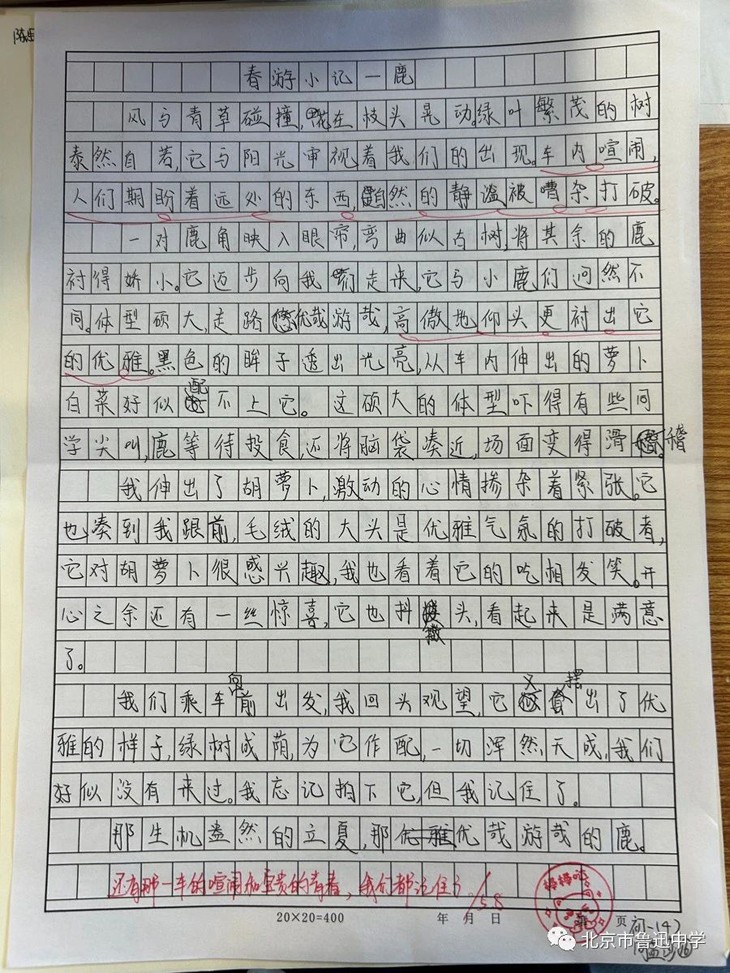 春游小记一鹿
风与青草碰撞,在枝头晃动.绿叶繁茂的树
泰然自若,它与阳光审视着我们的出现.车内喧闹,
人们期盼着远处的东西,自然的静谧被嘈杂打破.
一对鹿角映入眼帘,弯曲似古树,将其余的鹿
衬得娇小.它迈步向我们走来,它与小鹿们迥然不
同.体型硕大,走路优哉游哉,高傲地仰头更衬出它
的优雅.黑色的眸子透出光亮,从车内伸出的萝卜
白菜好似配不上它。这硕大的体型吓得有些同
学尖叫,鹿等待投食,还将脑袋凑近,场面变得滑稽.
我伸出了胡萝卜,激动的心情掺杂着紧张.它
也凑到我跟前,毛绒的大头是优雅气氛的打破者,
它对胡萝卜很感兴趣,我也看着它的吃相发笑.开
心之余还有一丝惊喜,它也抖擞头,看起来是满意
了.
我们乘车向前出发,我回头观望,它又摆出了优
雅的样子,绿树成荫,为它作配,一切浑然天成,我们
好似没有来过.我忘记拍下它,但我记住了.
那生机盎然的立夏,那优哉游哉的鹿.
还有那一车的喧闹和宝贵的青春,我们都记住了
58
20×20=400 年 月 日 页
北京市鲁迅中学